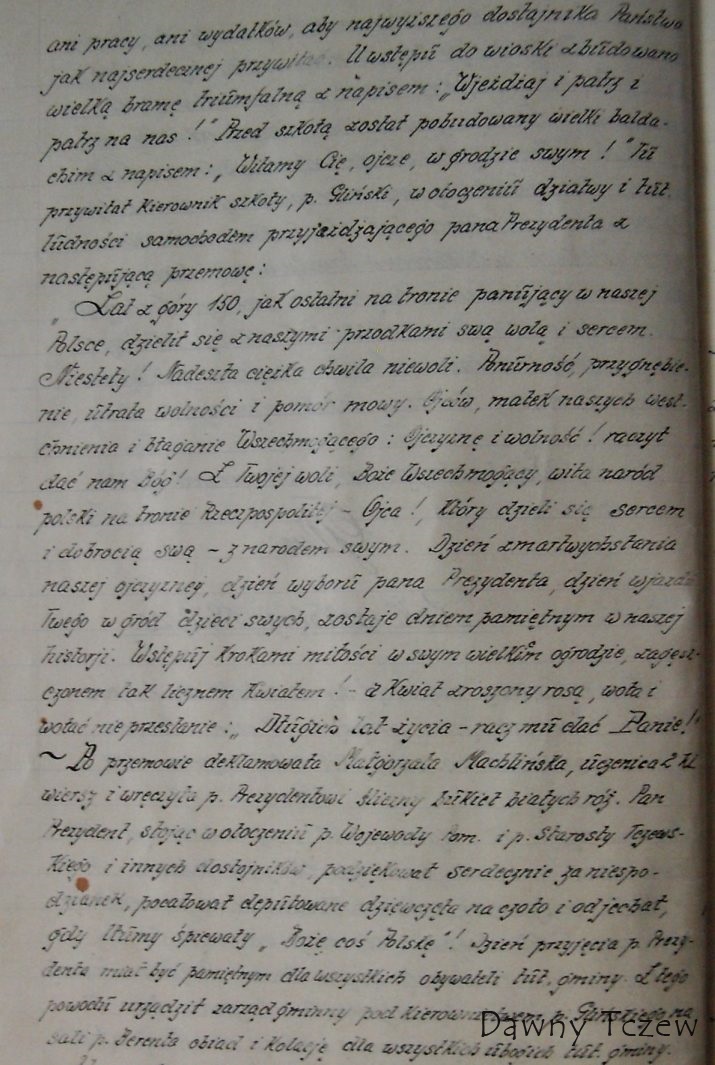 ani pracy, ani wydatków, aby najwyższego dostojnika Państwa
jak najserdeczniej przywitać. U wstępu do wioski zbudowano
wielką bramę triumfalną z napisem: „Wjeżdżaj i patrz i
patrz na nas!" Przed szkołą został pobudowany wielki balda-
chim z napisem: „Witamy Cię, ojcze, w grodzie swym!" Tu
przywitał kierownik szkoły, p. Gliński, w otoczeniu dziatwy i tut.
ludności samochodem przyjeżdżającego pana Prezydenta z
następującą przemowę:
„Lat z góry 150, jak ostatni na tronie panujący w naszej
Polsce, dzielił się z naszymi przodkami swą wolą i sercem.
Niestety! Nadeszła ciężka chwila niewoli. Ponurność, przygnębie-
nie, utrata wolności i pomór mowy. Ojców, matek naszych west-
chnienia i błaganie Wszechmogącego: Ojczyznę i wolność! raczył
dać nam Bóg! Z Twojej woli, Boże Wszechmogący, wita naród
polski na tronie Rzeczpospolitej – Ojca!, Który dzieli się sercem
i dobrocią swą – z narodem swym. Dzień zmartwychstania
naszej ojczyzney, dzień wyboru pana Prezydenta, dzień wjazdu
Twego w gród dzieci swych, zostaje dniem pamiętnym w naszej
historji. Wstępuj krokami miłości w swym wielkim ogrodzie, zagęsz-
czonem tak licznem kwiatem! – a kwiat zroszony rosą, woła i
wołać nie przestanie: „Długich lat życia – racz mu dać Panie!"
~ Po przemowie deklamowała Małgorzata Machlińska, uczenica 2 kl.
wiersz i wręczyła p. Prezydentowi śliczny bukiet białych róż. Pan
Prezydent, stojąc w otoczeniu p. Wojewody Pom. i p. Starosty Tczews-
kiego i innych dostojników, podziękował serdecznie za niespo-
dzianek, pocałował deputowane dziewczęta na czoło i odjechał,
gdy tłumy śpiewały „Boże coś Polskę"! Dzień przyjęcia p. Prezy-
denta miał być pamiętnym dla wszystkich obywateli tut. gminy. Z tego
powodu urządził zarząd gminny pod kierownictwem p. Glińskiego na
sali p. Berenta obiad i kolację dla wszystkich ubogich tut. gminy.
Dawny Tczew